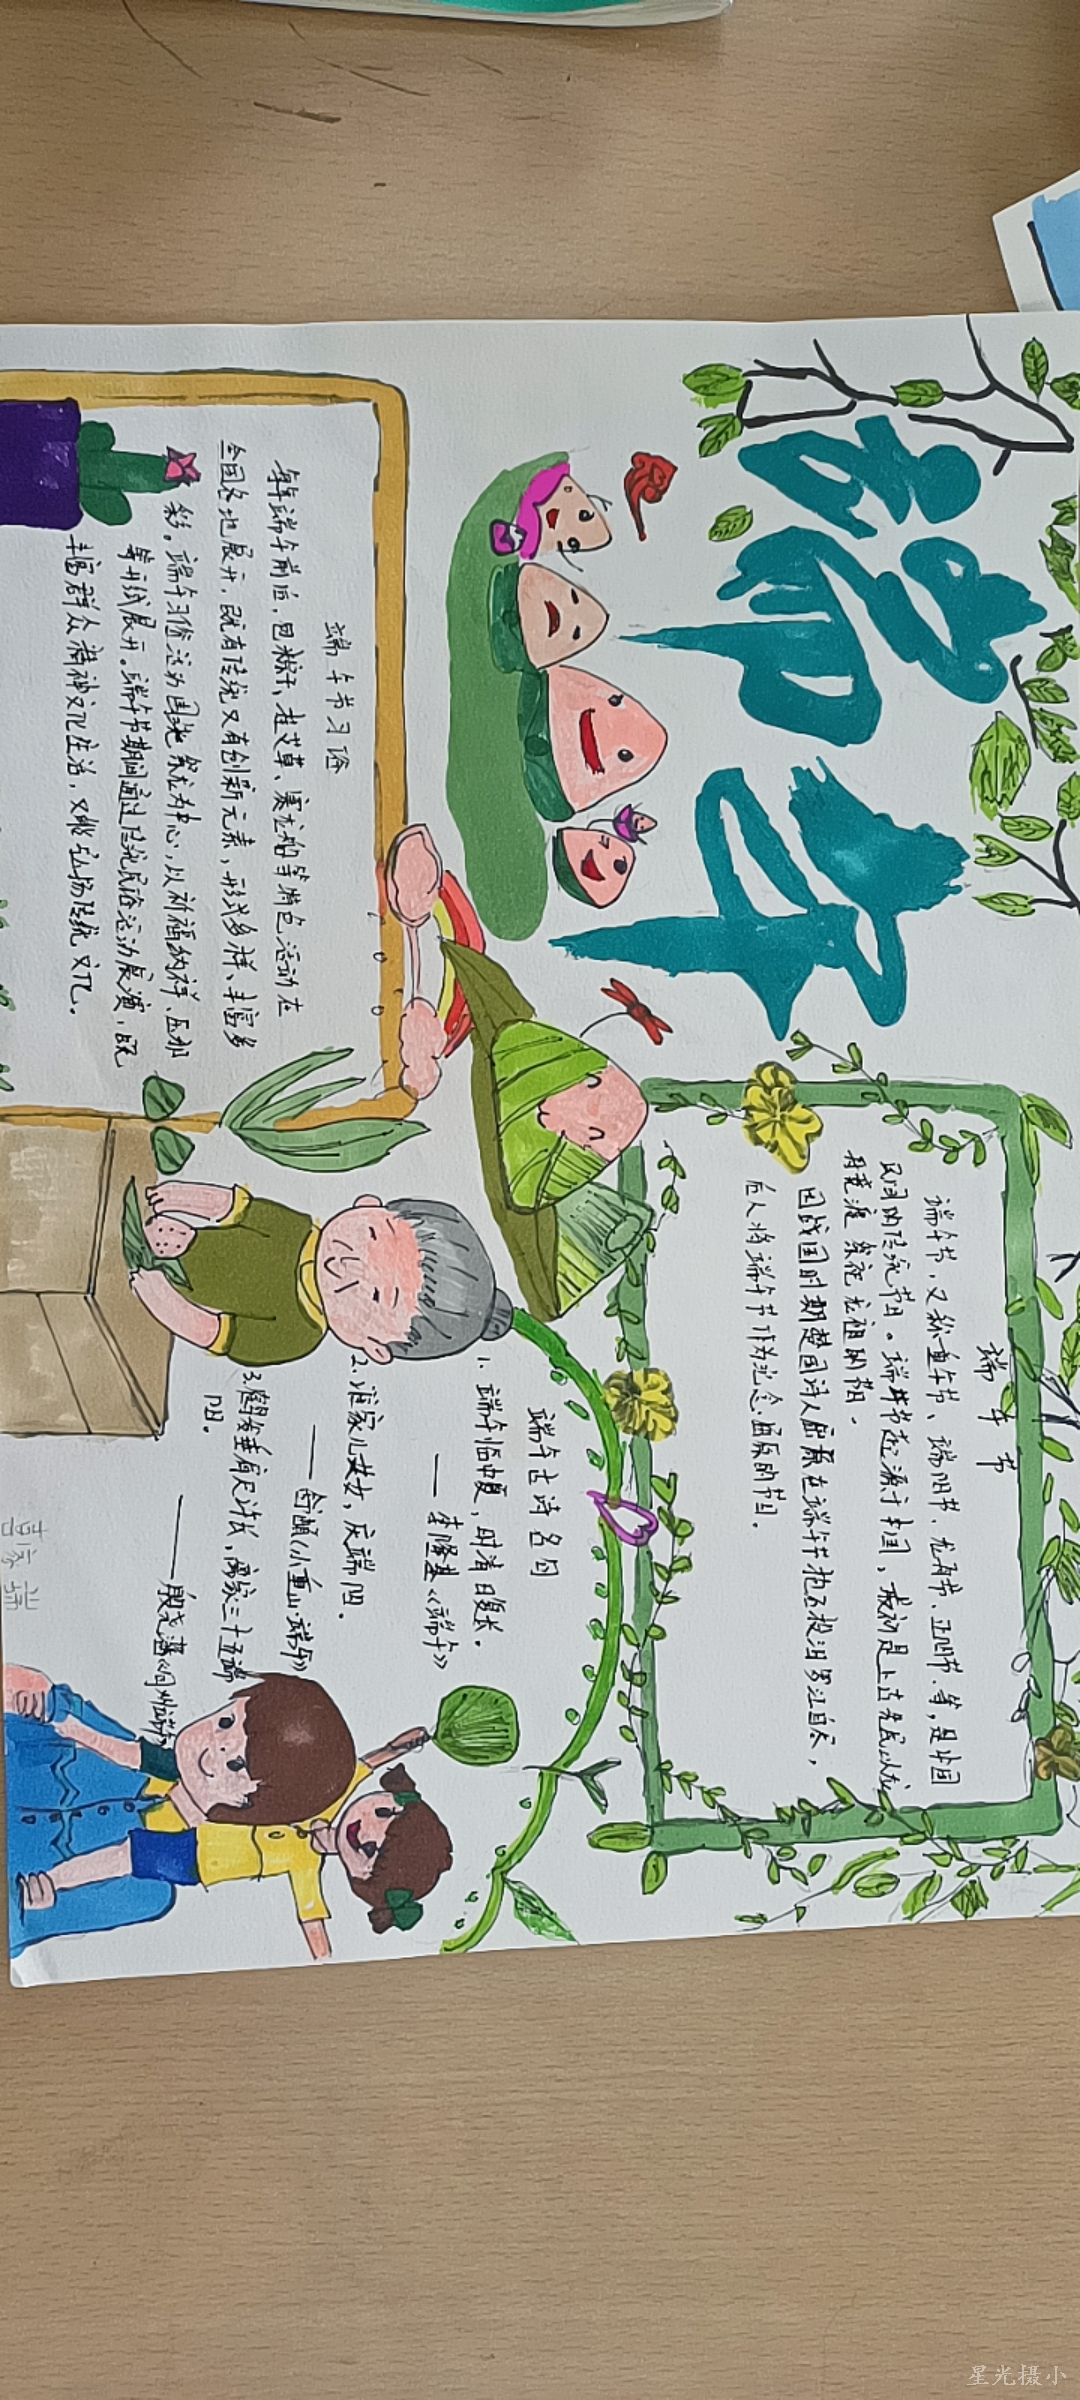 端午
端午节
端午节，又称重午节、端阳节、龙舟节、正阳节、等，是中国
民间的传统节日。端午节起源于中国，最初是上古先民以龙
舟竞渡祭祀龙祖的节日。
因战国时期楚国诗人屈原在端午节抱石投汨罗江自尽，
后人将端午节作为纪念屈原的节日。
端午节习俗
每年端午前后，包粽子、挂艾草、赛龙舟等特色活动在
全国各地展开，既有传统又有创新元素，形式多样、丰富多
彩。端午习俗活动围绕祭龙为中心，以祈福纳祥、压邪
等形式展开。端午节期间通过传统民俗活动展演，既
丰富群众精神文化生活，又能弘扬传统文化。
端午古诗名句
1. 端午临中夏，时清日复长。
——李隆基《端午》
2. 谁家儿女，庆端阳。
——舒頔《小重山·端午》
3. 鹤发垂肩尺许长，离家三十五端
阳。
——殷尧藩《同州端午》
星光摄小